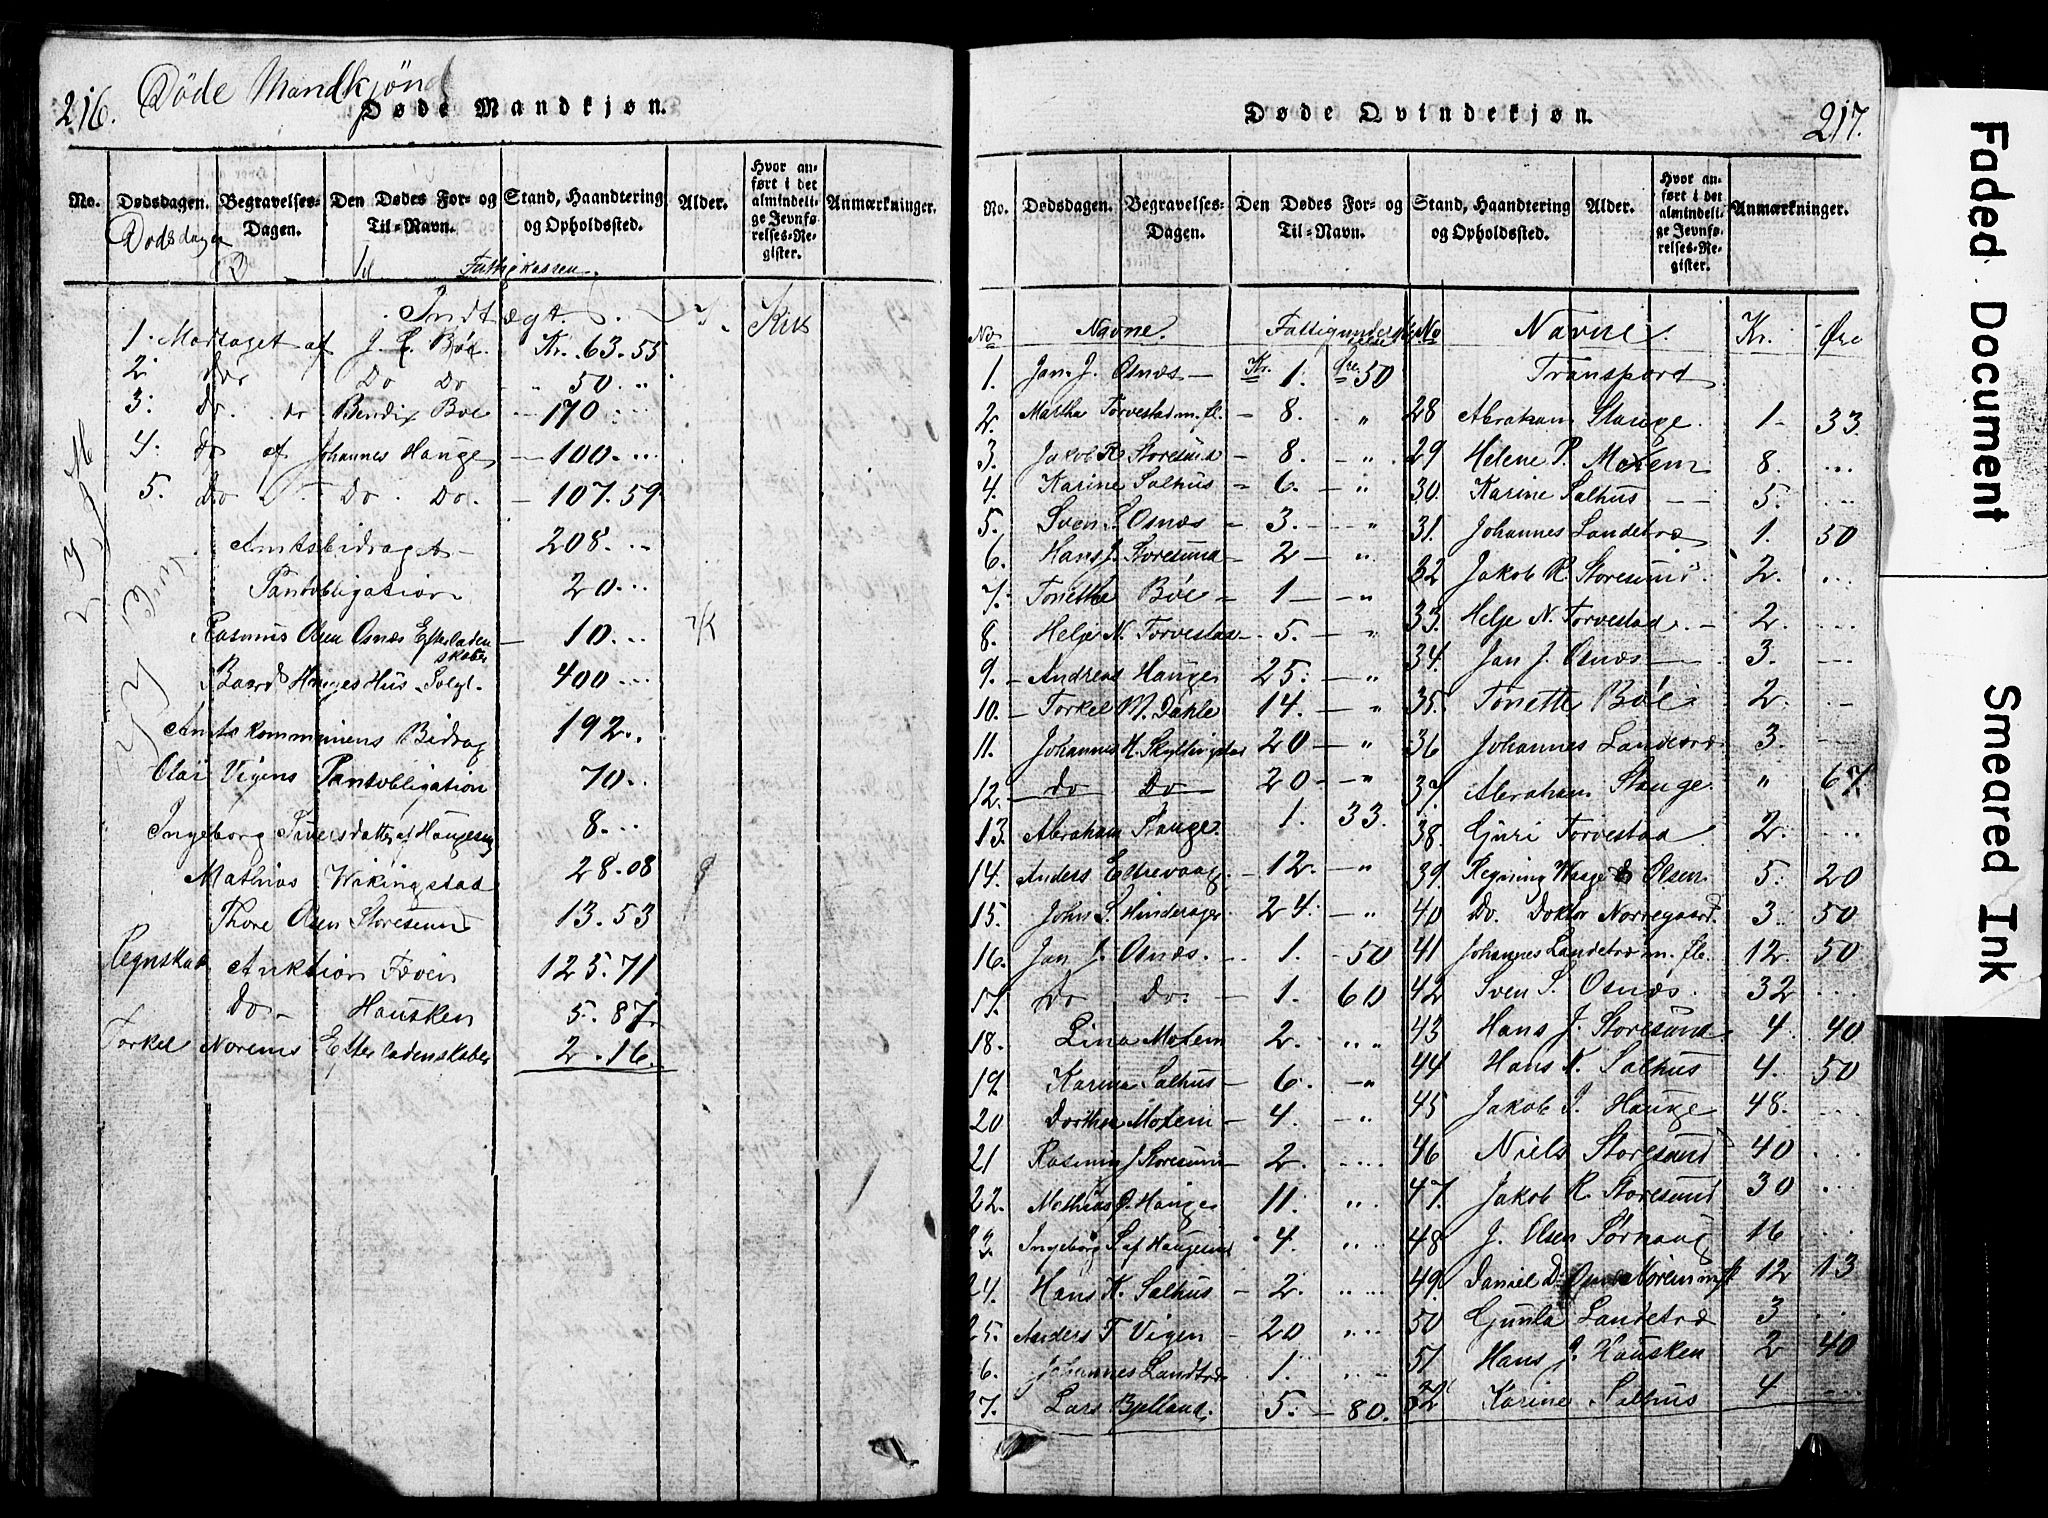 216. Døde Mandkjønd
Døde Mandkjøn.
No. Dødsdagen. Begravelses-Dagen. Den Dødes For- og Til-Navn. Stand, Haandtering og Opholdssted. Alder. Hvor anført i det almindelige Jevnførelses-Register. Anmærkninger.
Dodsdagen
Fattigkassen.
Indtægt.
1. Modtaget af J. Bøe. Kr. 63.55
2. Do Do „ 50. „
3. do. do Bendix Boe — 170 ...
4. do af Johannes Hauge — 100 ...
5. Do Do. Do. — 107.59
Amtsbidraget — 208. ..
Pantobligation 20. ..
Rasmus Olsen Osnæs Efterladenskaber — 10. ..
Baard Hauges Hus Solgt — 400 ...
Amtskommunens Bidrag 192. ..
Olai Vigens Pantobligation 70. ..
Ingeborg Haugesund 8. ..
Mathias Wikingstad 28.08
Thore Olsen Storesund 13.53
Regnskab Auktion Føvin 125.71
Do — Hausken 5.87
Torkel Norems Efterladenskaber 2.16.
Døde Qvindekjøn.
217.
No. Dødsdagen. Begravelses-Dagen. Den Dødes For- og Til-Navn. Stand, Haandtering og Opholdssted. Alder. Hvor anført i det almindelige Jevnførelses-Register. Anmærkninger.
No Navne Fattigunderstøttelse
1. Jan J. Osnæs — Kr. 1. Øre 50
2. Martha Torvestad m. fl. — 8. „
3. Jakob R Storesund — 8. — „
4. Karine Salhus — 6. — „
5. Sven S. Osnæs — 3. — „
6. Hans J. Storesund — 2 — „
7. Tonette Bøe — 1 — „
8. Helje N. Torvestad — 5. — „
9. — Andreas Hauge 25. — „
10. — Torkel M. Dahle 14. — „
11. Johannes H. 20 — „
12. do Do 20 — „
13. Abraham Stange. 1. 33.
14. Anders — 12. — „
15. John S. Hinderager — 24. — „
16. Jan J. Osnæs. — 1. — 50
17. Do Do. — 1. 60
18. Lina Moxem 2. „ „
19. Karine Salhus — 6. — „
20 Dorthea Moxem — 4. . „
21 Rasmus J Storesund — 2. ....
22. Mathias O. Hauge 11. „
23. Ingeborg S af Haugesund 4. ....
24. Hans K. Salhus — 2. ....
25. Anders T Vigen — 20 ....
26. Johannes Landtræ 1. ....
27. Lars Bjelland. 5. — 80.
No Navne. Kr. Øre
Transport
28 Abraham Stange. 1 - 33.
29 Helene P. Moxem 8. ...
30. Karine Salhus — 5. ...
31. Johannes Landetræ 1. 50
32 Jakob R. Storesund 2. ...
33. Helje N. Torvestad. — 2. ...
34. Jan J. Osnæs — 3. ...
35. Tonette Bøe 2. ...
36 Johannes Landetræ 3. —
37. Abraham Stange. „ 67
38. Guri Torvestad 2. ...
39 Regning Olsen 5. 20
40 Do. Doktor Norregaard. 3. 50
41 Johannes Landetræ m. fl. 12. 50
42 Sven S. Osnæs. 32 ...
43 Hans J. Storesund 4. 40
44 Hans K. Salhus 4. 50
45 Jakob J. Hauge 48. ...
46 Niels Storesund 40 ...
47. Jakob R. Storesund 30 ...
48 J. Olsen 16 ...
49. Daniel D. Norem 12 13
50 Gunla Landetræ 3 .
51 Hans J. Hausken 2 40
52 Karine Salhus 4 ...
Faded Document
Smeared Ink